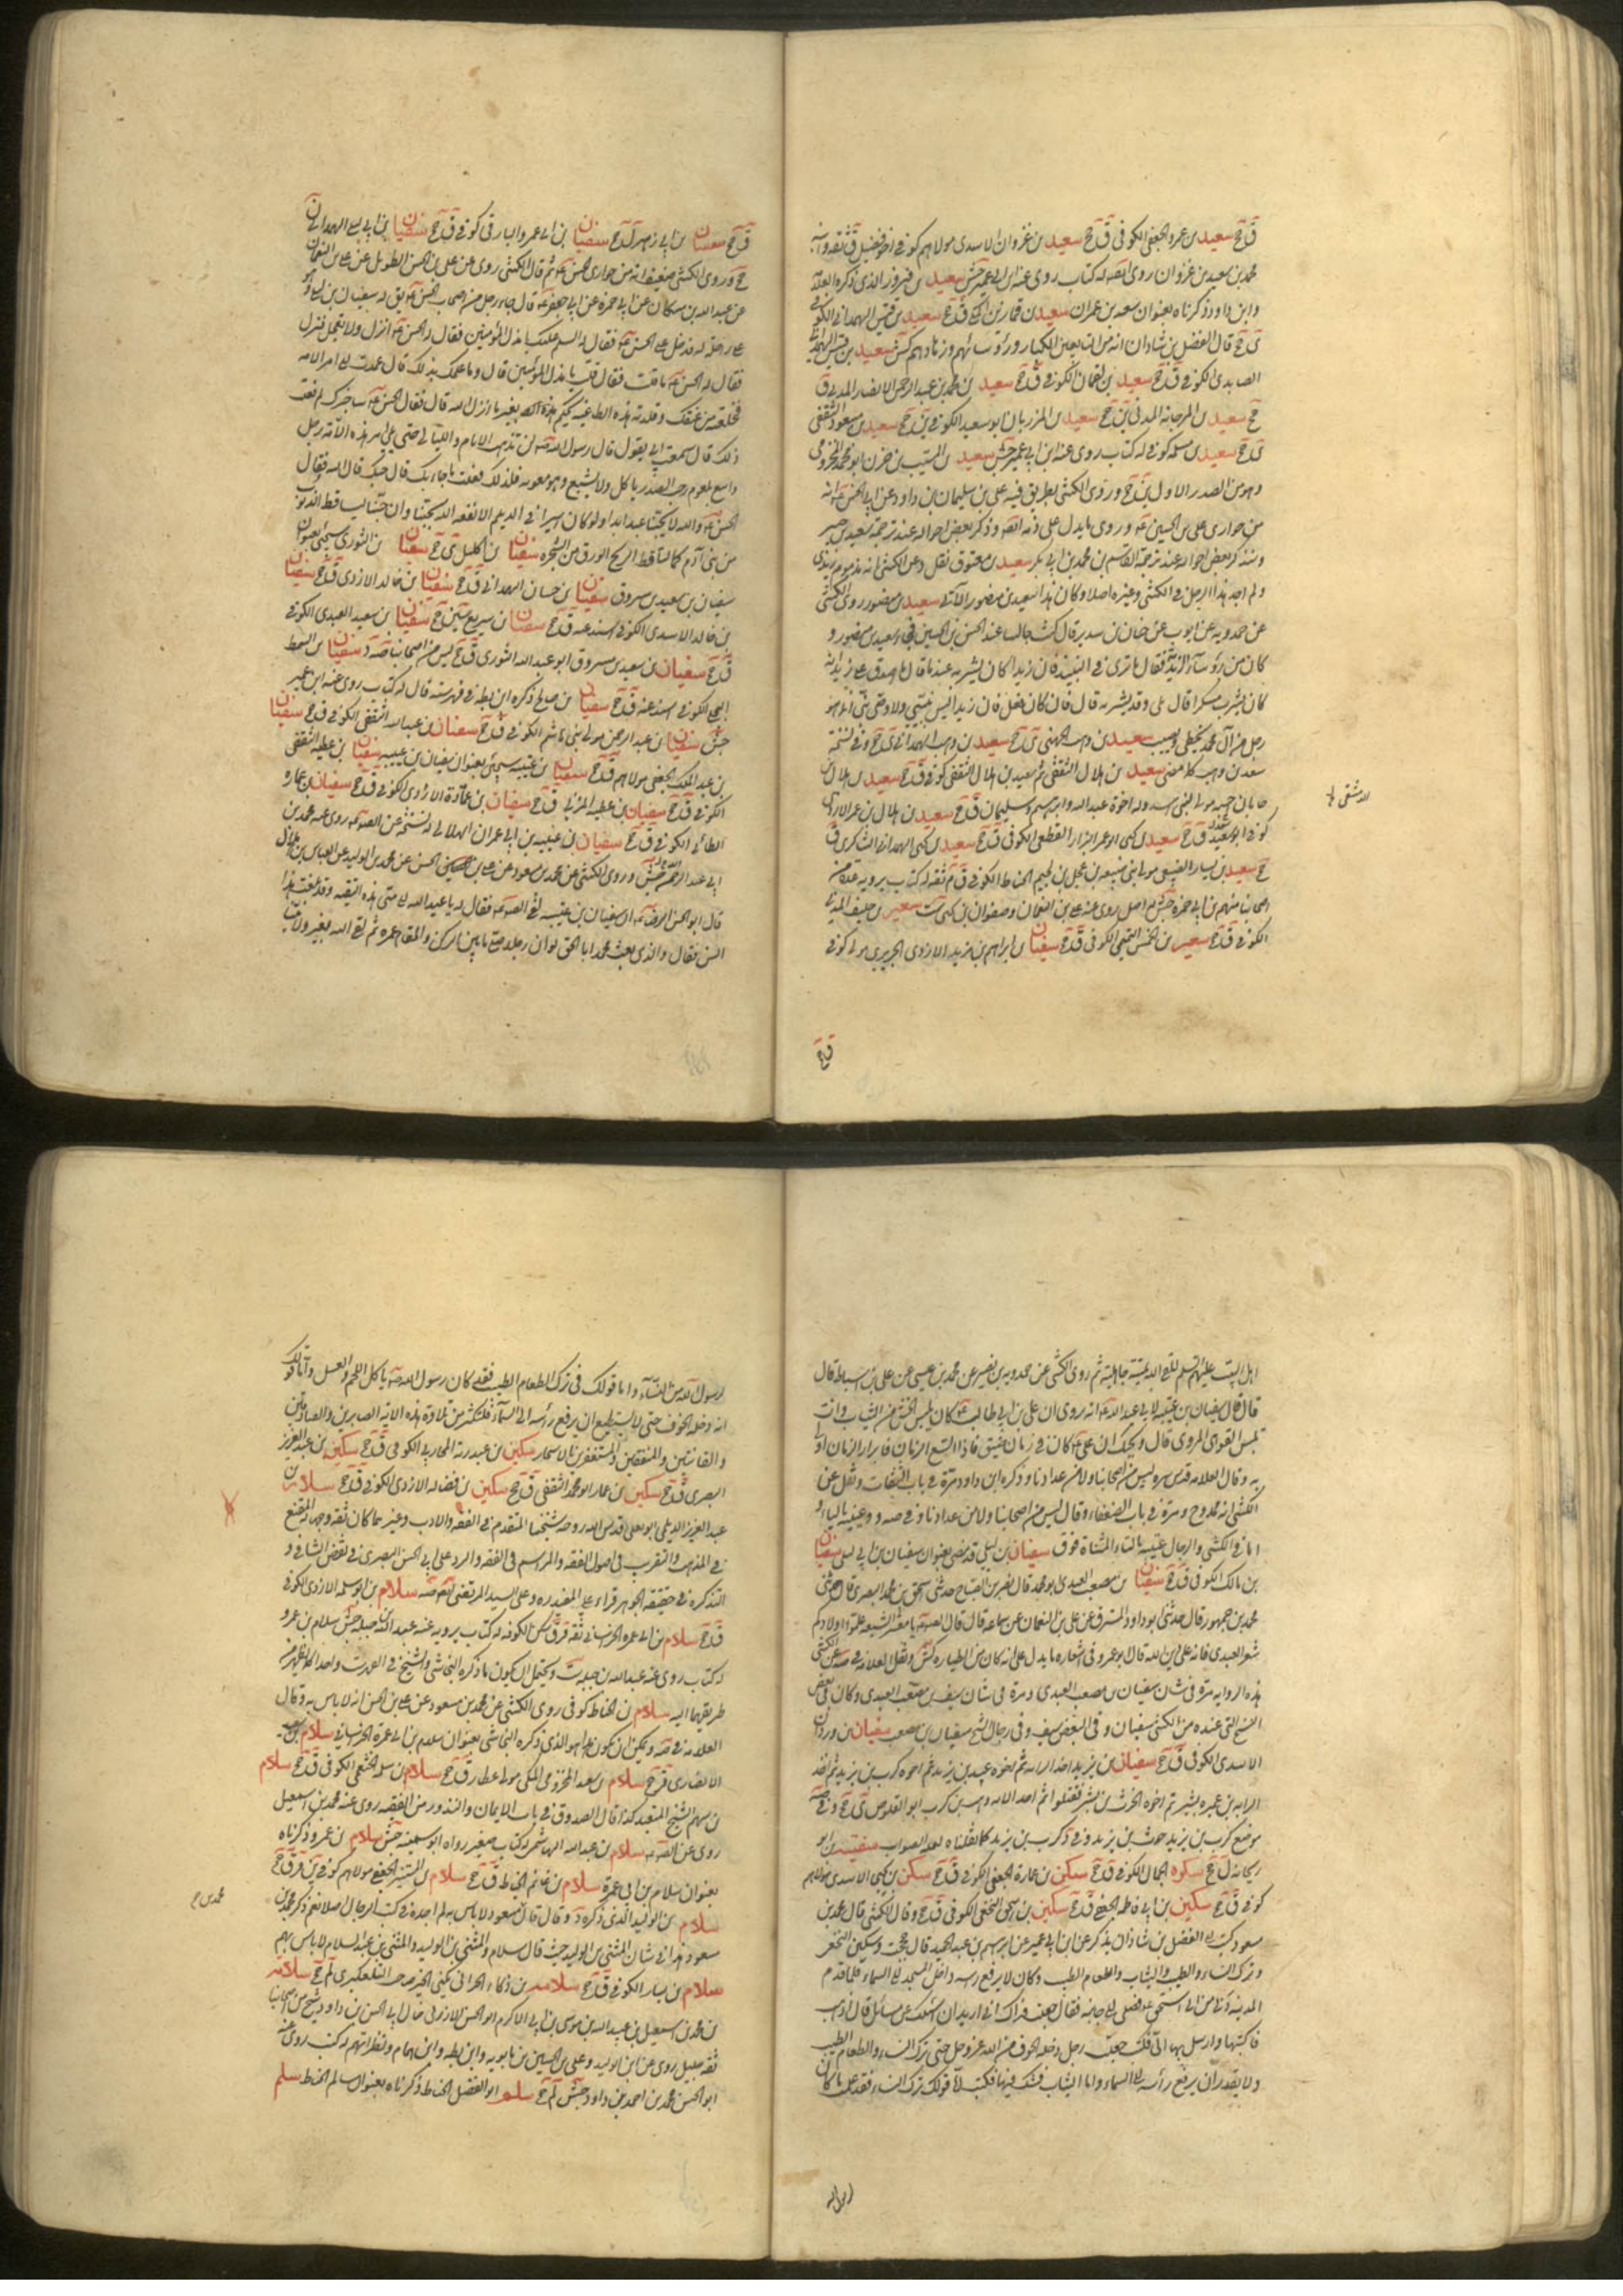 ق جخ سعيد بن عمرو الجعفي الكوفي ق جخ سعيد بن غزوان الاسدي مولاهم كوفي اخو فضيل ق ثقة وابنه
محمد بن سعيد بن غزوان روى له كتاب روى عنه ابن ابي عمير جش سعيد بن فيروز الذي ذكره العلامة
وابن داود ذكرناه بعنوان سعد بن عمران سعيد بن قيس الهمداني الكوفي
ي جخ قال الفضل بن شاذان انه من التابعين الكبار ورؤسائهم وزهادهم كش سعيد بن قيس الهمداني
الصايدي الكوفي ق جخ سعيد بن لقمان الكوفي ق جخ سعيد بن محمد بن عبد الرحمن الانصاري المدني ق
جخ سعيد بن المرجانة المدني ين جخ سعيد بن المرزبان ابو سعيد الكوفي ين جخ سعيد بن مسعود الثقفي
ي جخ سعيد بن مسلمة كوفي له كتاب روى عنه ابن ابي عمير جش سعيد بن المسيب بن حزن ابو محمد المخزومي
وهو من الصدر الاول ين جخ وروى الكشي بطريق فيه علي بن سليمان بن داود عن ابي الحسن انه
من حواري علي بن الحسين وروى ما يدل على ذمه وذكر بعض احواله عند ترجمة سعيد بن جبير
وسنذكر بعض احواله عند ترجمة القاسم بن محمد بن ابي بكر سعيد بن معتوق نقل د عن الكشي انه مذموم زيدي
ولم اجد هذا الرجل في الكشي وغيره اصلا وكان هذا سعيد بن منصور الآتي سعيد بن منصور روى الكشي
عن حمدويه عن ايوب عن حنان بن سدير قال كنت جالسا عند الحسن بن الحسين فجاء سعيد بن منصور و
كان من رؤساء الزيدية فقال ما ترى في النبيذ فان زيدا كان يشربه عندنا قال ما اصدق على زيد انه
كان يشرب مسكرا قال بلى وقد يشربه قال فان كان فعل فان زيدا ليس بنبي ولا وصي نبي انما هو
رجل من آل محمد يخطي ويصيب سعيد بن وهب الجهني ي جخ سعيد بن وهب الهمداني ي جخ وفي نسخة
سعد بن وهب كما مضى سعيد بن هلال الثقفي ثم سعيد بن هلال الثقفي كوفي ق جخ سعيد بن هلال بن
جابان مولى بني اسد وله اخوة عبد الله وابراهيم وسليمان ق جخ سعيد بن هلال بن عمرو الازدي
كوفي ابو سعيد ق جخ سعيد بن يحيى ابو عمرو البزار القطعي الكوفي ق جخ سعيد بن يحيى الهمداني الشاكري ق
جخ سعيد بن يسار الضبيعي مولى بني ضبيعة بن عجل بن لجيم الحناط الكوفي ق م ثقة له كتاب يرويه عدة من
اصحابنا منهم بن ابي حمزة جش له اصل روى عنه علي بن النعمان وصفوان بن يحيى ست سعير بن خليفة المدني
الكوفي ق جخ سعير بن الخمس التميمي الكوفي ق جخ سفيان بن ابراهيم بن مزيد الازدي الجريري مولى كوفي
ق جخ
الدمشقي
ق جخ سفيان بن ابي زهير ل جخ سفيان بن ابي عمرو البارقي كوفي ق جخ سفيان بن ابي ليلى الهمداني ن
جخ وروى الكشي ضعيفا انه من حواري الحسن ثم قال الكشي روى عن علي بن الحسن الطويل عن علي بن النعمان
عن عبد الله بن مسكان عن ابي حمزة عن ابي جعفر قال جاء رجل من اصحاب الحسن يق له سفيان بن ليلى وهو
على راحلة له فدخل على الحسن فقال له السلم عليك يا مذل المؤمنين فقال له الحسن انزل ولا تعجل فنزل
فقال له الحسن ما قلت فقال قلت يا مذل المؤمنين قال وما علمك بذلك قال عمدت الى امر الامة
فخلعته من عنقك وقلدته هذه الطاغية يحكم بغير ما انزل الله قال فقال الحسن ساخبرك لم فعلت
ذلك قال سمعت ابي يقول قال رسول الله لن تذهب الايام والليالي حتى يلي امر هذه الامة رجل
واسع البلعوم رحب الصدر ياكل ولا يشبع وهو معوية فلذلك فعلت ما جاء بك قال حبك قال الله فقال
الحسن والله لا يحبنا عبد ابدا ولو كان اسيرا في الديلم الا نفعه الله بحبنا وان حبنا ليساقط الذنوب
من بني آدم كما تساقط الريح الورق من الشجرة سفيان بن اكيل ي جخ سفيان بن الثوري سيجيء بعنوان
سفيان بن سعيد بن مسروق سفيان بن حسان الهمداني ق جخ سفيان بن خالد الازدي ق جخ سفيان
بن خالد الاسدي الكوفي اسند عنه ق جخ سفيان بن سريع ين جخ سفيان بن سعيد العبدي الكوفي
ق جخ سفيان بن سعيد بن مسروق ابو عبد الله الثوري ق جخ ليس من اصحابنا صه د سفيان بن السمط
البجلي الكوفي اسند عنه ق جخ سفيان بن صالح ذكره ابن بطة في فهرسته قال له كتاب روى عنه ابن ابي عمير
جش سفيان بن عبد الرحمن مولى بني هاشم الكوفي ق جخ سفيان بن عبد الله الثقفي الكوفي ق جخ سفيان
بن عبد الملك الجعفي مولاهم ق جخ سفيان بن عتيبة سيجيء بعنوان سفيان بن عيينة سفيان بن عطية الثقفي
الكوفي ق جخ سفيان بن عطية المزني ق جخ سفيان بن عمارة الازدي الكوفي ق جخ سفيان بن عمارة
الطائي الكوفي ق جخ سفيان بن عيينة بن ابي عمران الهلالي له نسخة عن الصادق روى عنه محمد بن
ابي عبد الرحمن جش وروى الكشي عن محمد بن مسعود عن علي بن الحسن عن محمد بن الوليد عن العباس بن هلال
قال ابو الحسن الرضا ان سفيان بن عيينة لقي الصادق فقال له يا عبد الله الى متى هذه التقية وقد بلغت هذا
السن فقال والذي بعث محمدا بالحق لو ان رجلا صلى ما بين الركن والمقام عمره ثم لقي الله بغير ولايتنا
اهل البيت عليهم السلم للقي الله بميتة جاهلية ثم روى الكشي عن حمدويه بن نصير عن محمد بن عيسى عن علي بن اسباط قال
قال قال سفيان بن عيينة لابي عبد الله انه روى ان علي بن ابي طالب كان يلبس الخشن من الثياب وانت
تلبس القوهي المروي قال ويحك ان عليا كان في زمان ضيق فاذا اتسع الزمان فابرار الزمان اولى
به وقال العلامة قدس سره ليس من اصحابنا ولا من عدادنا وذكره ابن داود مرة في باب الثقات ونقل عن
الكشي انه ممدوح ومرة في باب الضعفاء وقال ليس من اصحابنا ولا من عدادنا وفي صه ود عيينة بالياء و
اما في الكشي والرجال عتيبة بالتاء المثناة فوق سفيان بن ليلى قد مضى بعنوان سفيان بن ابي ليلى سفيان
بن مالك الكوفي ق جخ سفيان بن مصعب العبدي ابو محمد قال نصر بن الصباح حدثني اسحق بن محمد البصري قال حدثني
محمد بن جمهور قال حدثني ابو داود المسترق عن علي بن النعمان عن سماعة قال قال يا معشر الشيعة علموا اولادكم
شعر العبدي فانه على دين الله قال ابو عمرو في اشعاره ما يدل على انه كان من الطيارة كش ونقل العلامة في صه عن الكشي
هذه الرواية مرة في شان سفيان بن مصعب العبدي ومرة في شان سيف بن مصعب العبدي وكان في بعض
النسخ التي عنده من الكشي سفيان وفي البعض سيف وفي رجال الشيخ سفيان بن مصعب سفيان بن وردان
الاسدي الكوفي ق جخ سفيان بن يزيد اخذ الراية ثم اخوه عبيد بن يزيد ثم اخوه كرب بن يزيد ثم اخذ
الراية بن عميرة بشير ثم اخوه الحرث بن بشر فقتلوا ثم اخذ الراية وهب بن كرب ابو القلوص ي جخ وفي صه
موضع كرب بن يزيد حرث بن يزيد وفي د كرب بن يزيد كما نقلناه لعله الصواب سفينة ابو
ريحانة ل جخ سكوه الجمال الكوفي ق جخ سكن بن عمارة الجعفي الكوفي ق جخ سكن بن يحيى الاسدي مولاهم
كوفي ق جخ سكين بن ابي فاطمة الجعفي ق جخ سكين بن اسحق النخعي الكوفي ق جخ وقال الكشي قال محمد بن
مسعود كتب الى الفضل بن شاذان يذكر عن ابن ابي عمير عن ابراهيم بن عبد الحميد قال حججت وسكين النخعي
وترك النساء والطيب والثياب والطعام الطيب وكان لا يرفع راسه داخل المسجد الى السماء فلما قدم
المدينة دنا من ابي اسحق فصلى الى جانبه فقال جعلت فداك اني اريد ان اسئلك عن مسائل قال اذهب
فاكتبها وارسل بها الي فكتب جعلت رجل دخله الخوف من الله عز وجل حتى ترك النساء والطعام الطيب
ولا يقدر ان يرفع رأسه الى السماء واما الثياب فشك فيها فكتب اما قولك ترك النساء فقد علمت ما كان
لرسول الله
لرسول الله من النساء واما قولك في ترك الطعام الطيب فقد كان رسول الله ياكل اللحم والعسل واما قولك
انه دخله الخوف حتى لا يستطيع ان يرفع رأسه الى السماء فليكثر من تلاوة هذه الآية الصابرين والصادقين
والقانتين والمنفقين والمستغفرين بالاسحار سكين بن عبد ربه المحاربي الكوفي ق جخ سكين بن عبد العزيز
البصري ق جخ سكين بن عمار ابو محمد الثقفي ق جخ سكين بن فضالة الازدي الكوفي ق جخ سلار بن
عبد العزيز الديلمي ابو يعلى قدس الله روحه شيخنا المتقدم في الفقه والادب وغيرهما كان ثقة وجها له المقنع
في المذهب والتقريب في اصول الفقه والمراسم في الفقه والرد على ابي الحسن البصري في نقض الشافي و
التذكرة في حقيقة الجوهر قراء على المفيد ره وعلى السيد المرتضى سلام بن ابو سلمة الازدي الكوفي
ق جخ سلام بن ابي عمرة الخراساني ثقة ق ر سكن الكوفة له كتاب يرويه عنه عبد الله بن جبلة جش سلام بن عمرو
له كتاب روى عنه عبد الله بن جبلة ست ويحتمل ان يكون ما ذكره النجاشي والشيخ في الفهرست واحدا كما يظهر من
طريقهما اليه سلام بن الحناط كوفي روى الكشي عن محمد بن مسعود عن علي بن الحسن انه لا باس به وقال
العلامة في صه ويمكن ان يكون هذا هو الذي ذكره النجاشي بعنوان سلام بن ابي عمرة الخراساني سلام بن
الانصاري ق جخ سلام بن سعيد المخزومي المكي مولى عطار ق جخ سلام بن سلمة الخثعمي الكوفي ق جخ سلام
بن سهم الشيخ المتعبد كذا قال الصدوق في باب الايمان والنذور من الفقيه روى عنه محمد بن اسمعيل
روى عن سلام بن عبد الله الهاشمي له كتاب صغير رواه ابو سمينة جش سلام بن عمرو ذكرناه
بعنوان سلام بن ابي عمرة سلام بن غانم الحناط ق جخ سلام بن المستنير الجعفي مولاهم كوفي ين قر ق جخ
سلام بن الوليد الذي ذكره د وقال قال مسعود لا باس به لم اجده في كتب الرجال اصلا نعم ذكر محمد بن
مسعود هذا في شان المثنى بن الوليد حيث قال سلام والمثنى بن الوليد والمثنى بن عبد السلام لا باس بهم
سلام بن يسار الكوفي ق جخ سلامة بن ذكاء الحراني يكنى ابا الخير صاحب التلعكبري لم جخ سلامة
بن محمد بن اسمعيل بن عبد الله بن موسى بن ابي الاكرم ابو الحسن الارزني خال ابي الحسن بن داود شيخ من اصحابنا
ثقة جليل روى عن ابن الوليد وعلي بن الحسين بن بابويه وابن بطة وابن همام ونظرائهم له كتب روى عنه
ابو الحسن محمد بن احمد بن داود جش لم جخ سلم ابو الفضل الحناط ذكرناه بعنوان سالم الحناط سلم
محمد بن ح